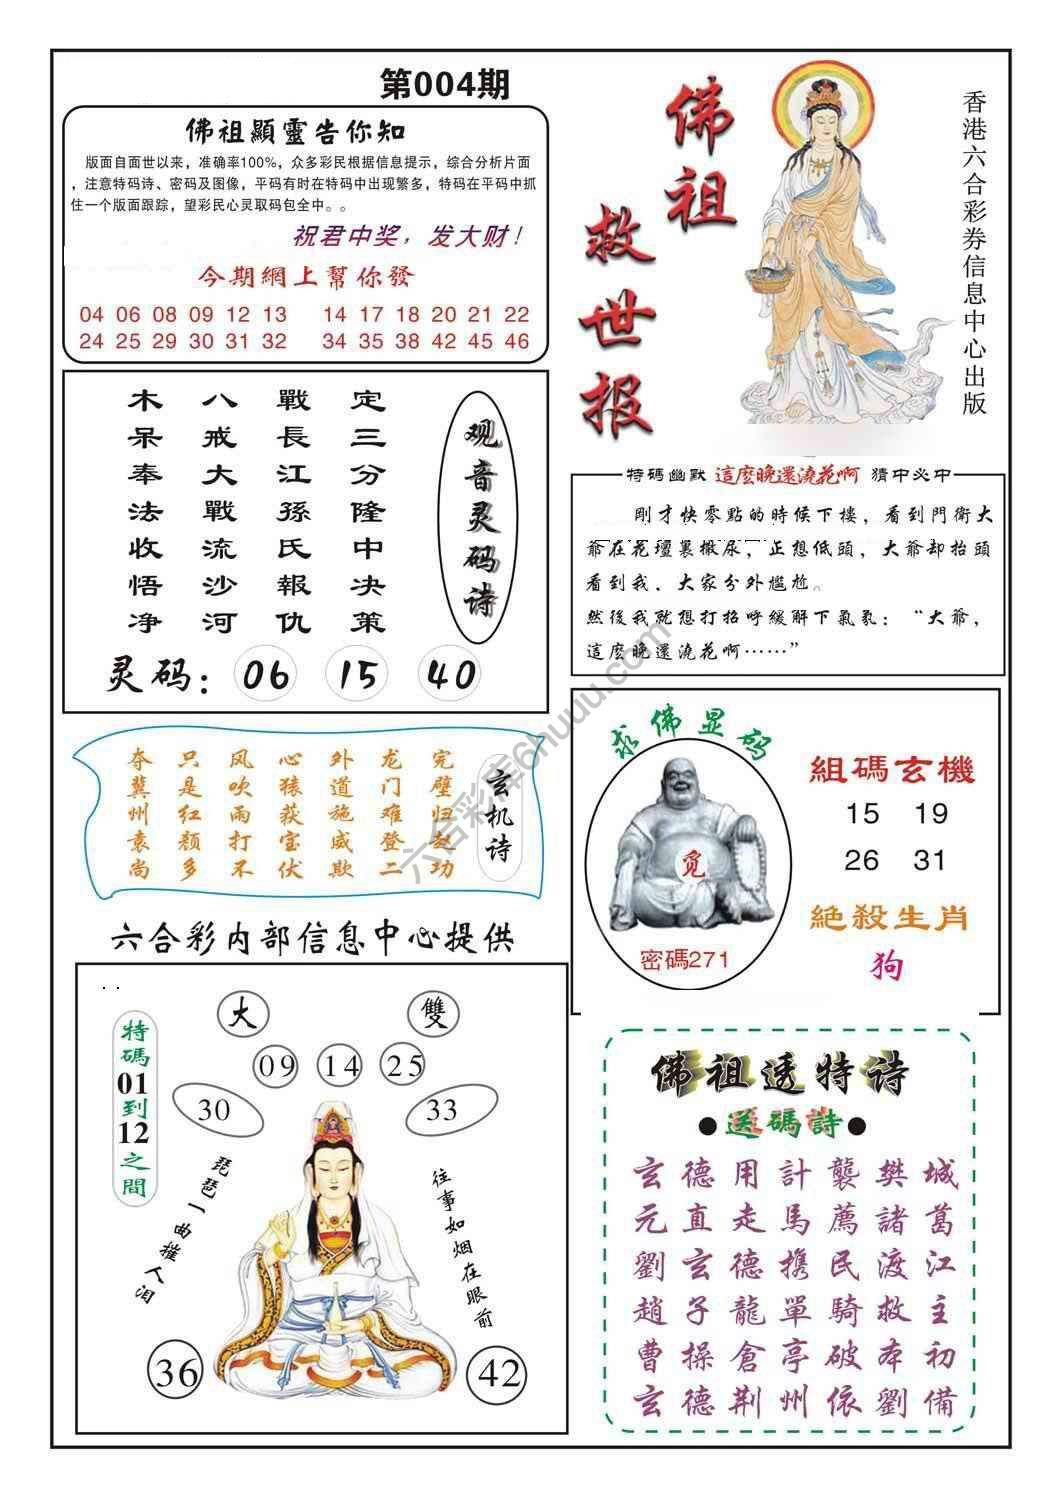 第004期
佛祖顯靈告你知
版面自面世以来，准确率100%，众多彩民根据信息提示，综合分析片面
，注意特码诗、密码及图像，平码有时在特码中出现繁多，特码在平码中抓
住一个版面跟踪，望彩民心灵取码包全中。。
祝君中奖，发大财！
今期網上幫你發
04 06 08 09 12 13 14 17 18 20 21 22
24 25 29 30 31 32 34 35 38 42 45 46
佛祖
救世报
香港六合彩券信息中心出版
定三分隆中决策
戰長江孫氏報仇
八戒大戰流沙河
木呆奉法收悟净
观音灵码诗
灵码：06 15 40
特碼幽默 這麽晚還澆花啊 猜中必中
剛才快零點的時候下樓，看到門衛大
爺在花壇裏撒尿，正想低頭，大爺却抬頭
看到我，大家分外尷尬。
然後我就想打招呼緩解下氣氛：“大爺，
這麽晚還澆花啊……”
玄机诗
完璧归赵功
龙门难登二
外道施威欺
心猿获宝伏
风吹雨打不
只是红颜多
夺冀州袁尚
求佛显码
觅
密碼271
組碼玄機
15 19
26 31
絕殺生肖
狗
六合彩内部信息中心提供
特碼01到12之間
大 雙
09 14 25
30 33
琵琶一曲摧人泪
往事如烟在眼前
36 42
佛祖透特诗
●送碼詩●
玄德用計襲樊城
元直走馬薦諸葛
劉玄德携民渡江
趙子龍單騎救主
曹操倉亭破本初
玄德荆州依劉備
六合彩库6huuu.com